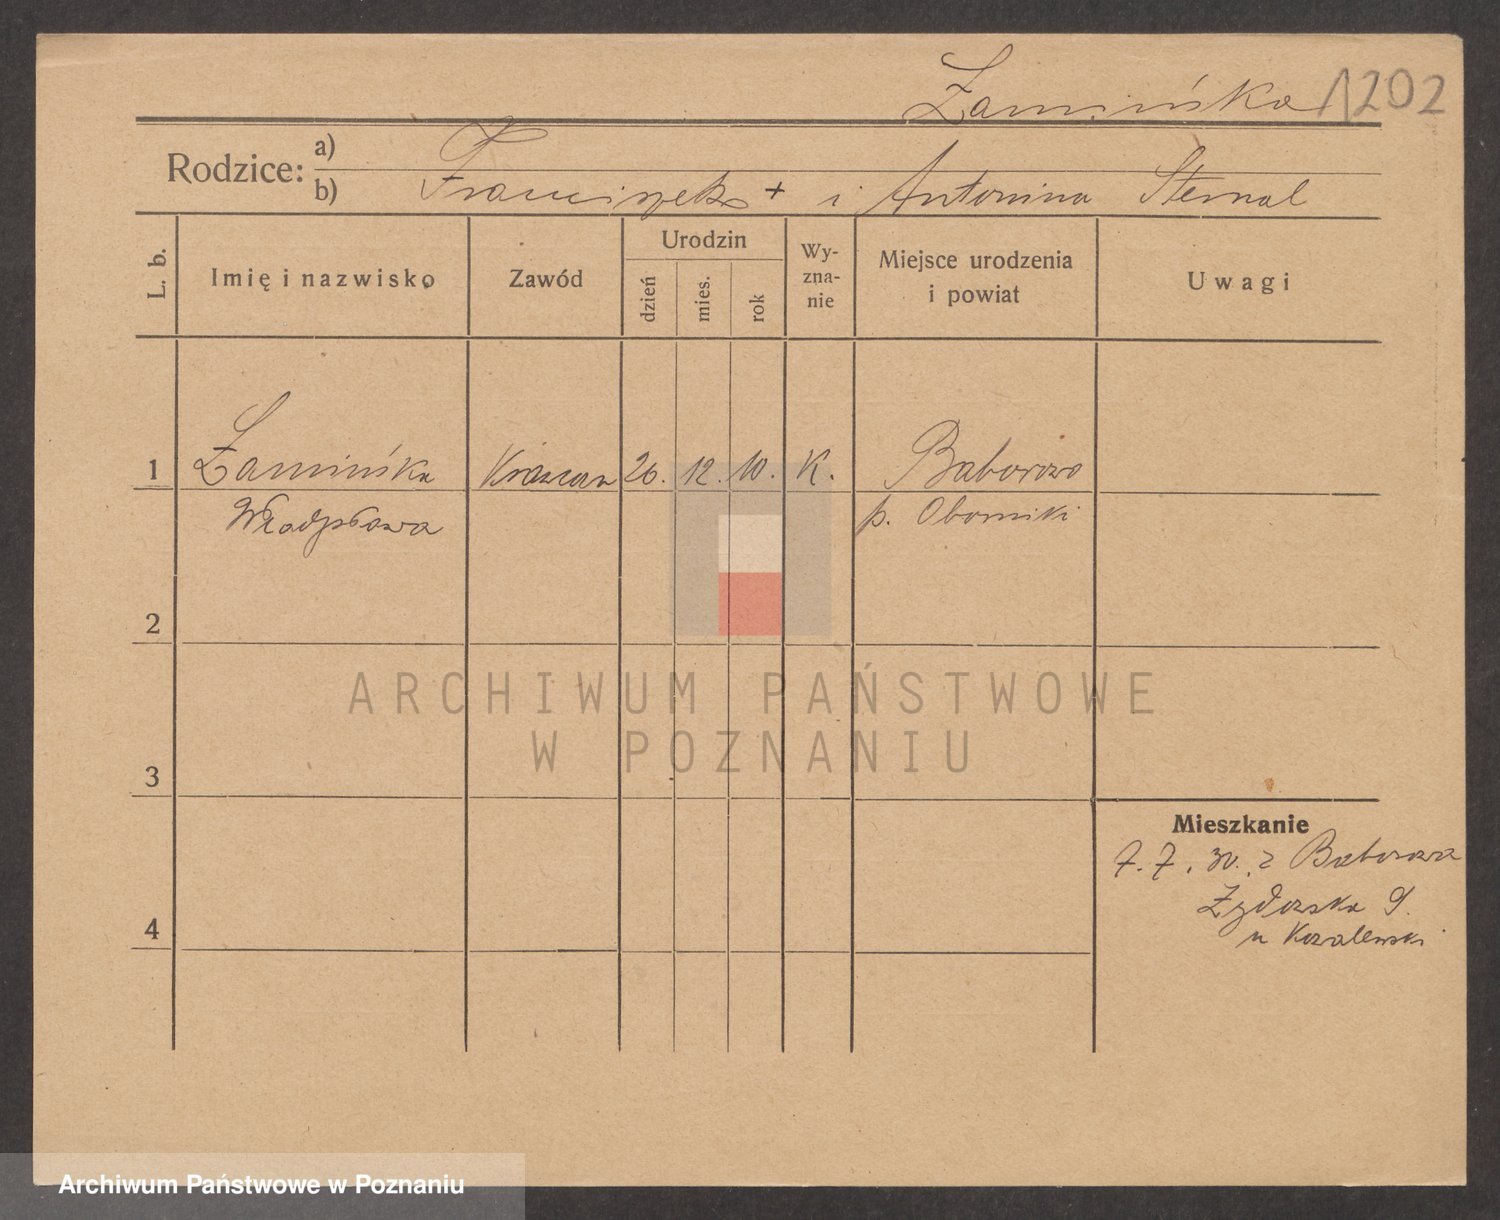 Zamińska 1202
Rodzice: a)
b) Franciszek + i Antonina Sternal
L. b.
Imię i nazwisko
Zawód
Urodzin
dzień
mies.
rok
Wy-
zna-
nie
Miejsce urodzenia
i powiat
Uwagi
1 Zamińska 26. 12. 10. K. Baborowo
Władysława p. Oborniki
2
3
4
Mieszkanie
7. 7. 30. z Baborowa
9.
u Kowalewski
ARCHIWUM PAŃSTWOWE
W POZNANIU
Archiwum Państwowe w Poznaniu